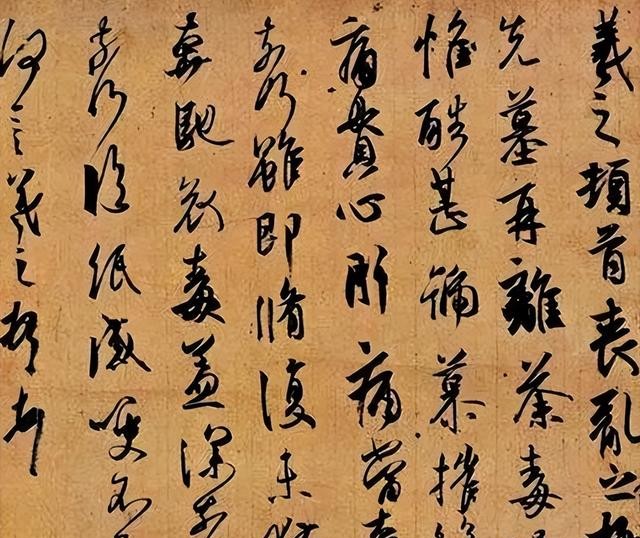 羲之頓首喪亂之極
先墓再離荼毒
惟酷甚號慕摧絕
痛貫心肝痛當奈
奈何雖即脩復未
奔馳哀毒益深奈
奈何臨紙感哽不
何言羲之頓首